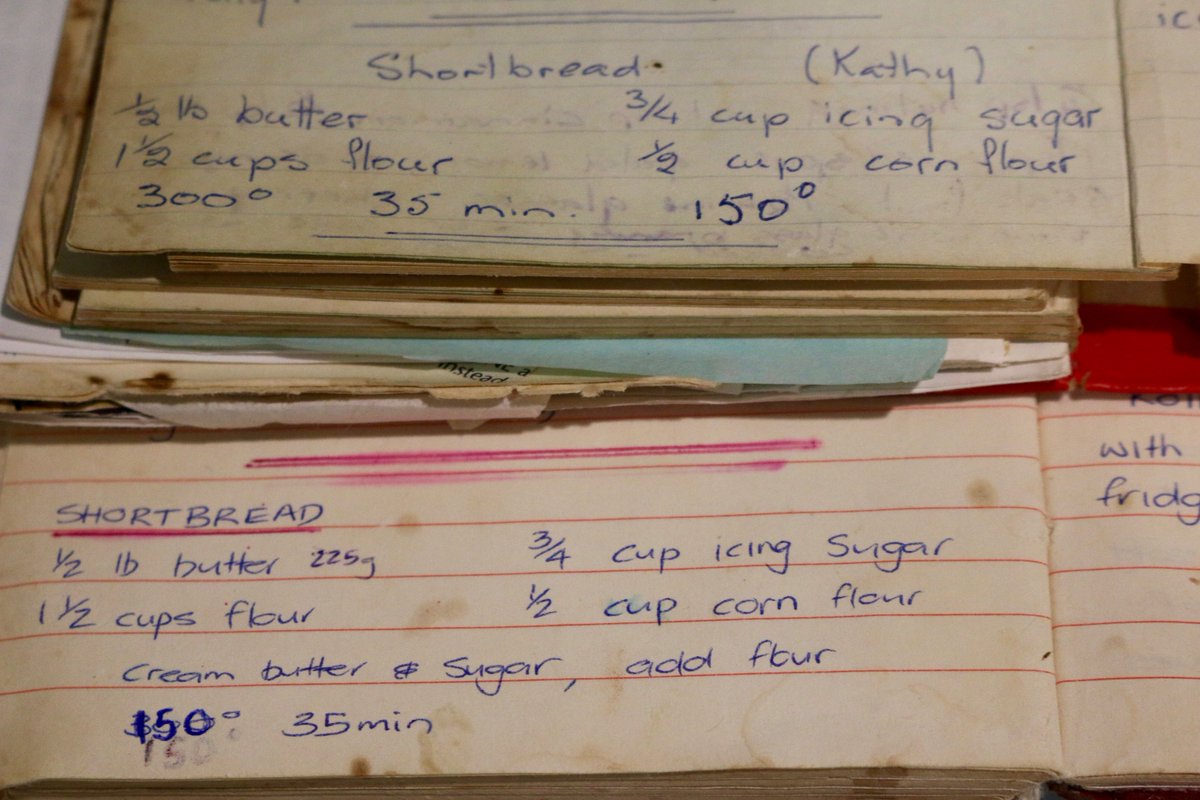 Shortbread. (Kathy)
½ lb butter ¾ cup icing sugar
1½ cups flour ½ cup corn flour
300° 35 min. 150°
instead
SHORTBREAD
½ lb butter 225g ¾ cup icing Sugar
1½ cups flour ½ cup corn flour
Cream butter & Sugar, add flour
150° 35min
150
with